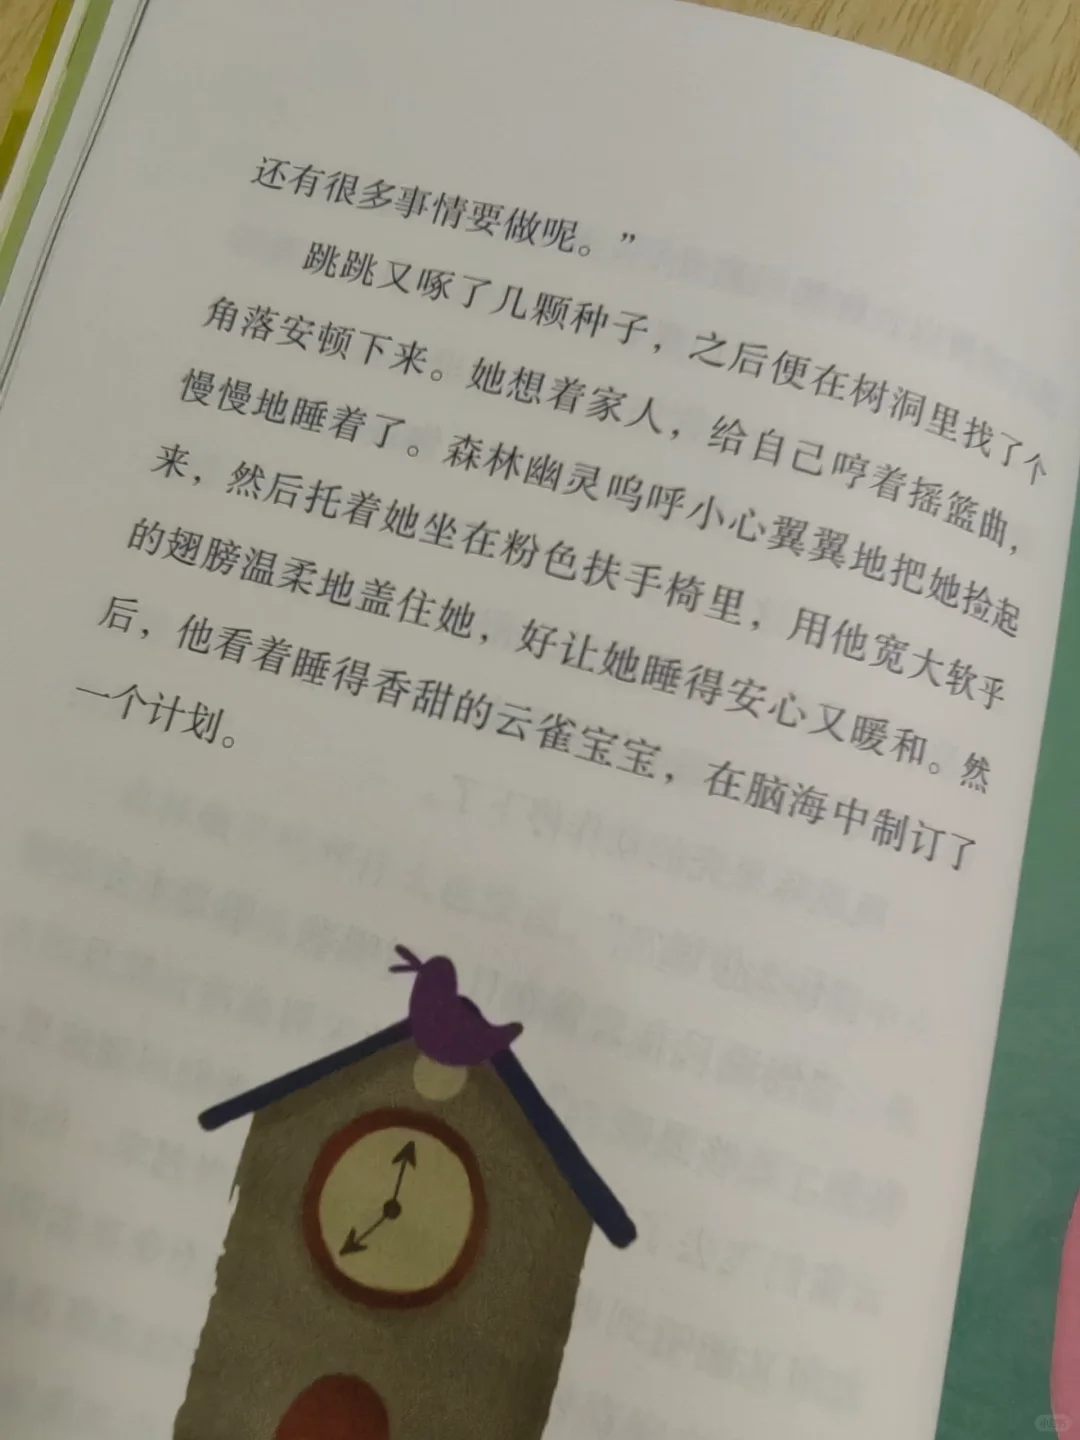 还有很多事情要做呢。”
跳跳又啄了几颗种子，之后便在树洞里找了个
角落安顿下来。她想着家人，给自己哼着摇篮曲，
慢慢地睡着了。森林幽灵呜呼小心翼翼地把她捡起
来，然后托着她坐在粉色扶手椅里，用他宽大软乎
的翅膀温柔地盖住她，好让她睡得安心又暖和。然
后，他看着睡得香甜的云雀宝宝，在脑海中制订了
一个计划。